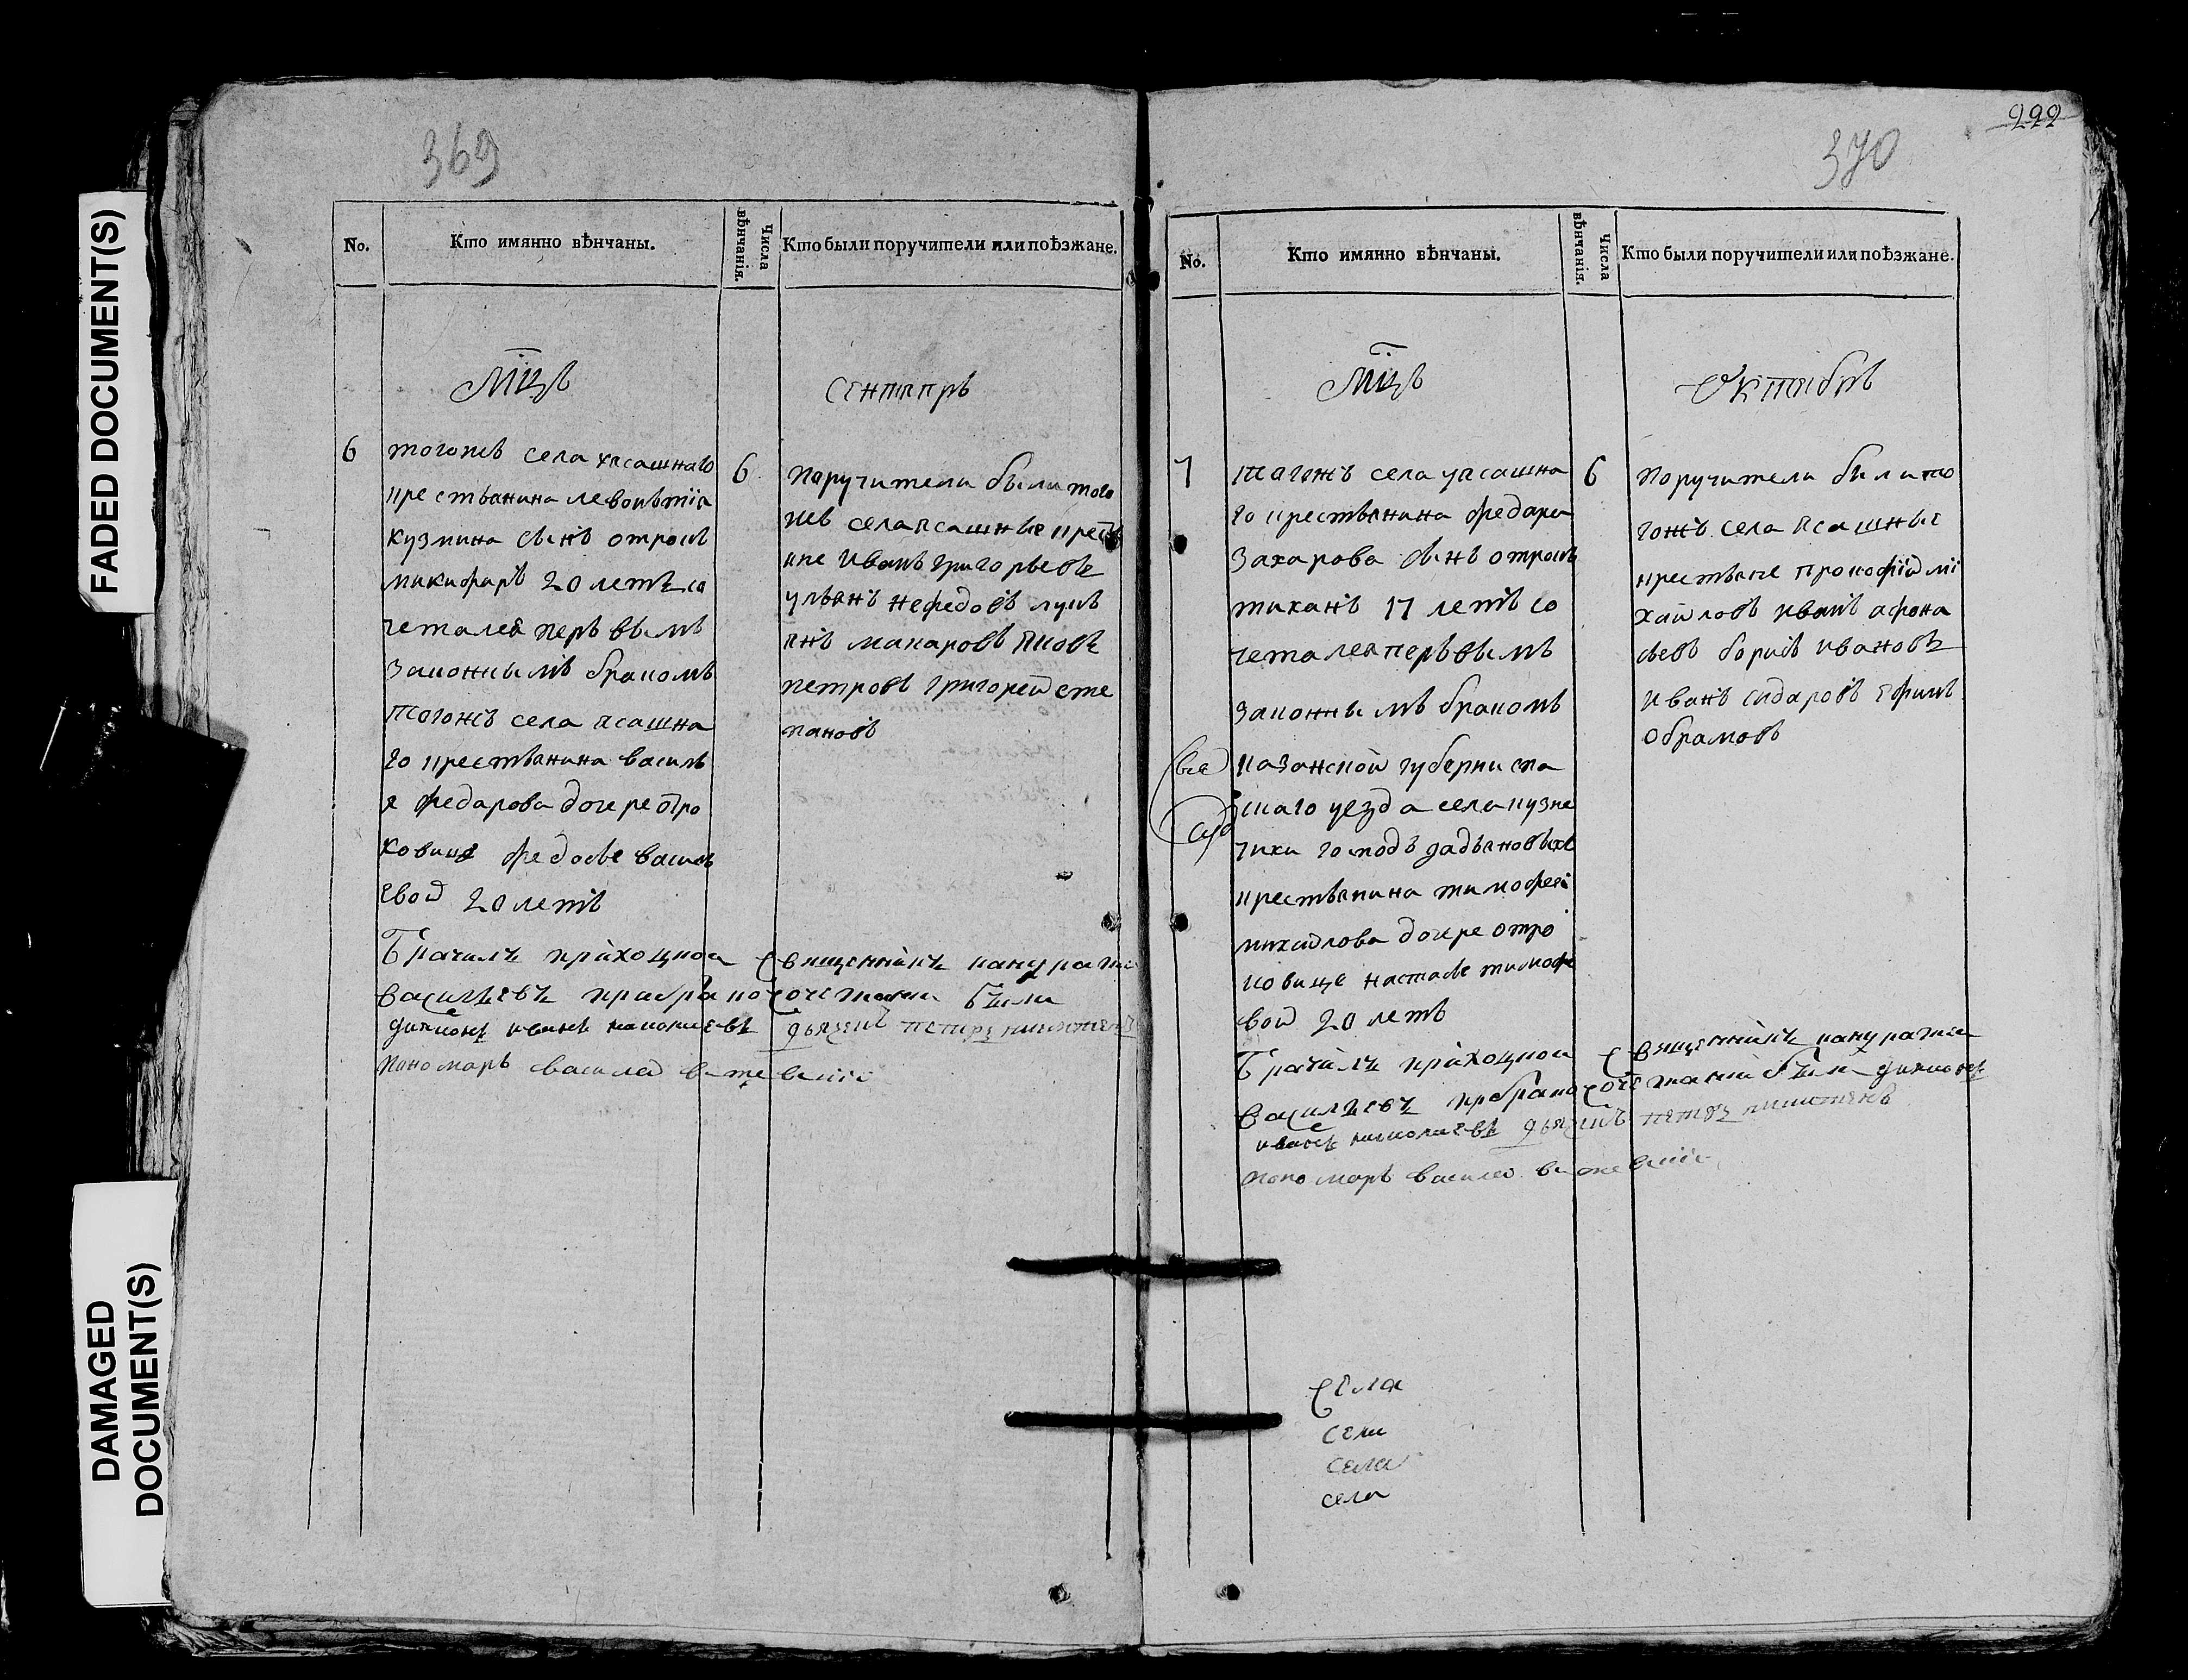 FADED DOCUMENT(S)
DAMAGED
DOCUMENT(S)
369
No.
Кто имянно вѣнчаны.
Числа
вѣнчанія.
Кто были поручители или поѣзжане.
Мць
Сентяпрь
6
тогожъ села ясашнаго
крестьянина левонътїя
кузмина сынъ отрокъ
никифаръ 20 летъ со
четался перъвымъ
законнымъ бракомъ
тогожъ села ясашна
го крестьянина василь
я федарова дочере отро
ковице федосье василь
евой 20 летъ
6
поручители были того
жъ села ясашные кресть
яне иванъ григорьевъ
ульянъ нефедовъ лукь
янъ макаровъ яковъ
петровъ григорей сте
пановъ
Брачилъ приходцкои священникъ кандратеи
васильевъ при бракосочетании были
диаконъ иванъ николаевъ дьячекъ петръ никитинъ
пономарь василей
222
370
No.
Кто имянно вѣнчаны.
Числа
вѣнчанія.
Кто были поручители или поѣзжане.
Мць
Октябрь
7
тагожъ села ясашна
го крестьянина федара
захарова сынъ отрокъ
тиханъ 17 летъ со
четался перъвымъ
законнымъ бракомъ
казанской губерни спа
скаго уезда села кузне
чихи господъ
крестьянина тимофея
михайлова дочере отро
ковице настасье тимофе
вой 20 летъ
6
поручители были то
гожъ села ясашные
крестьяне прокофїй мі
хайловъ иванъ афона
сьевъ борисъ ивановъ
иванъ сидаровъ ефимъ
обрамовъ
Брачилъ приходцкои священникъ кандратеи
васильевъ при бракосочетании были диаконъ
иванъ николаевъ дьячекъ петръ никитинъ
пономарь василей
села
сели
села
села